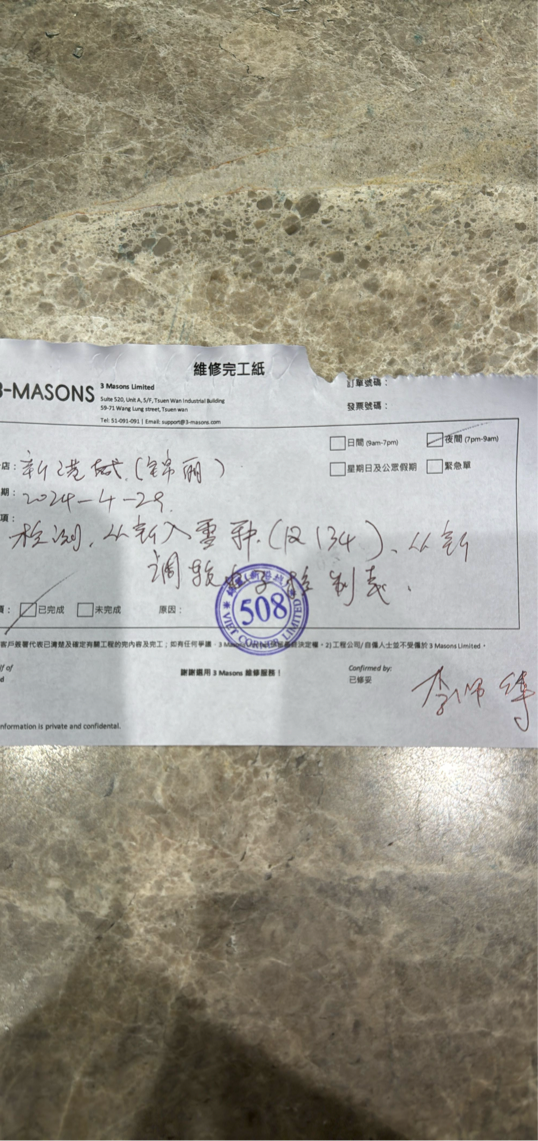 維修完工紙
3-MASONS
3 Masons Limited
Suite 520, Unit A, 5/F, Tsuen Wan Industrial Building
59-71 Wang Lung street, Tsuen wan
Tel: 51-091-091 | Email: support@3-masons.com
訂單號碼：
發票號碼：
日間 (9am-7pm) 夜間 (7pm-9am)
星期日及公眾假期 緊急單
店：新港城(錦丽)
期：2024-4-29.
項：
檢測, 从新入雪种 (R134), 从新
調較 控制表.
已完成 未完成 原因：
508
VIET CORNER LIMITED
客戶簽署代表已清楚及確定有關工程的完內容及完工；如有任何爭議，3 決定權。2)工程公司/自僱人士並不受僱於 3 Masons Limited。
謝謝選用 3 Masons 維修服務！
Confirmed by:
已修妥
李师傅
nformation is private and confidential.